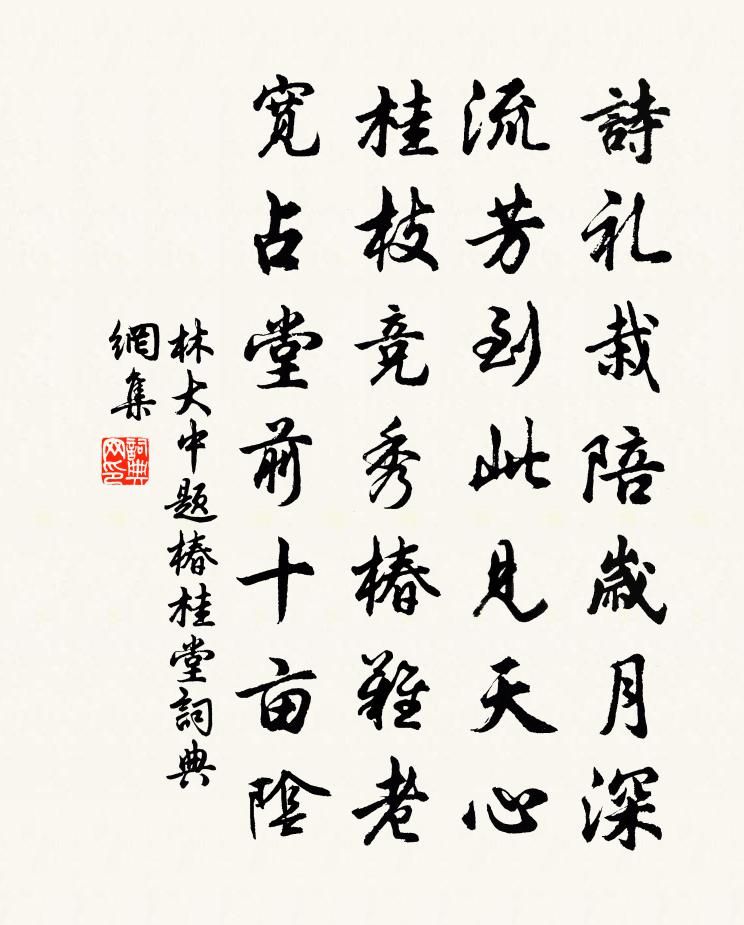 詩礼栽陪歲月深
流芳到此見天心
桂枝竞秀椿難老
寬占堂前十亩陰
林大中题椿桂堂詞典
網集
詞典
网印